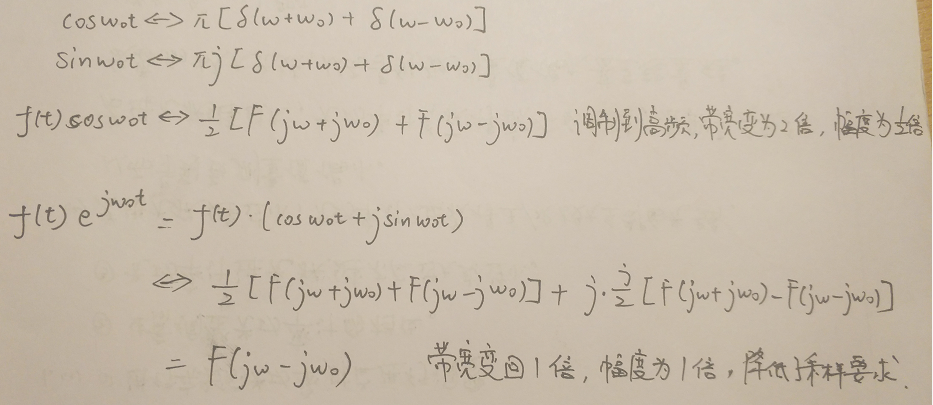 cosw₀t ⇔ π[δ(w+w₀) + δ(w-w₀)]
sinw₀t ⇔ πj[δ(w+w₀) + δ(w-w₀)]
f(t)cosw₀t ⇔ 1/2 [F(jw+jw₀) + F(jw-jw₀)] 调制到高频,带宽变为2倍,幅度为1/2倍
f(t)e^{jw₀t} = f(t)·(cosw₀t+jsinw₀t)
⇔ 1/2 [F(jw+jw₀)+F(jw-jw₀)] + j·j/2 [F(jw+jw₀)-F(jw-jw₀)]
= F(jw-jw₀) 带宽变回1倍,幅度为1倍,降低了采样要求.